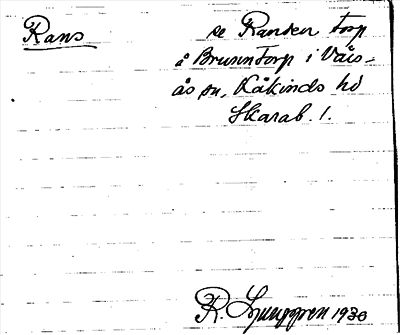 Rans
se Ransen torp
å Brunntorp i Vårs-
ås sn, Kåkinds hd
Skarab. l.
R. Ljunggren 1930